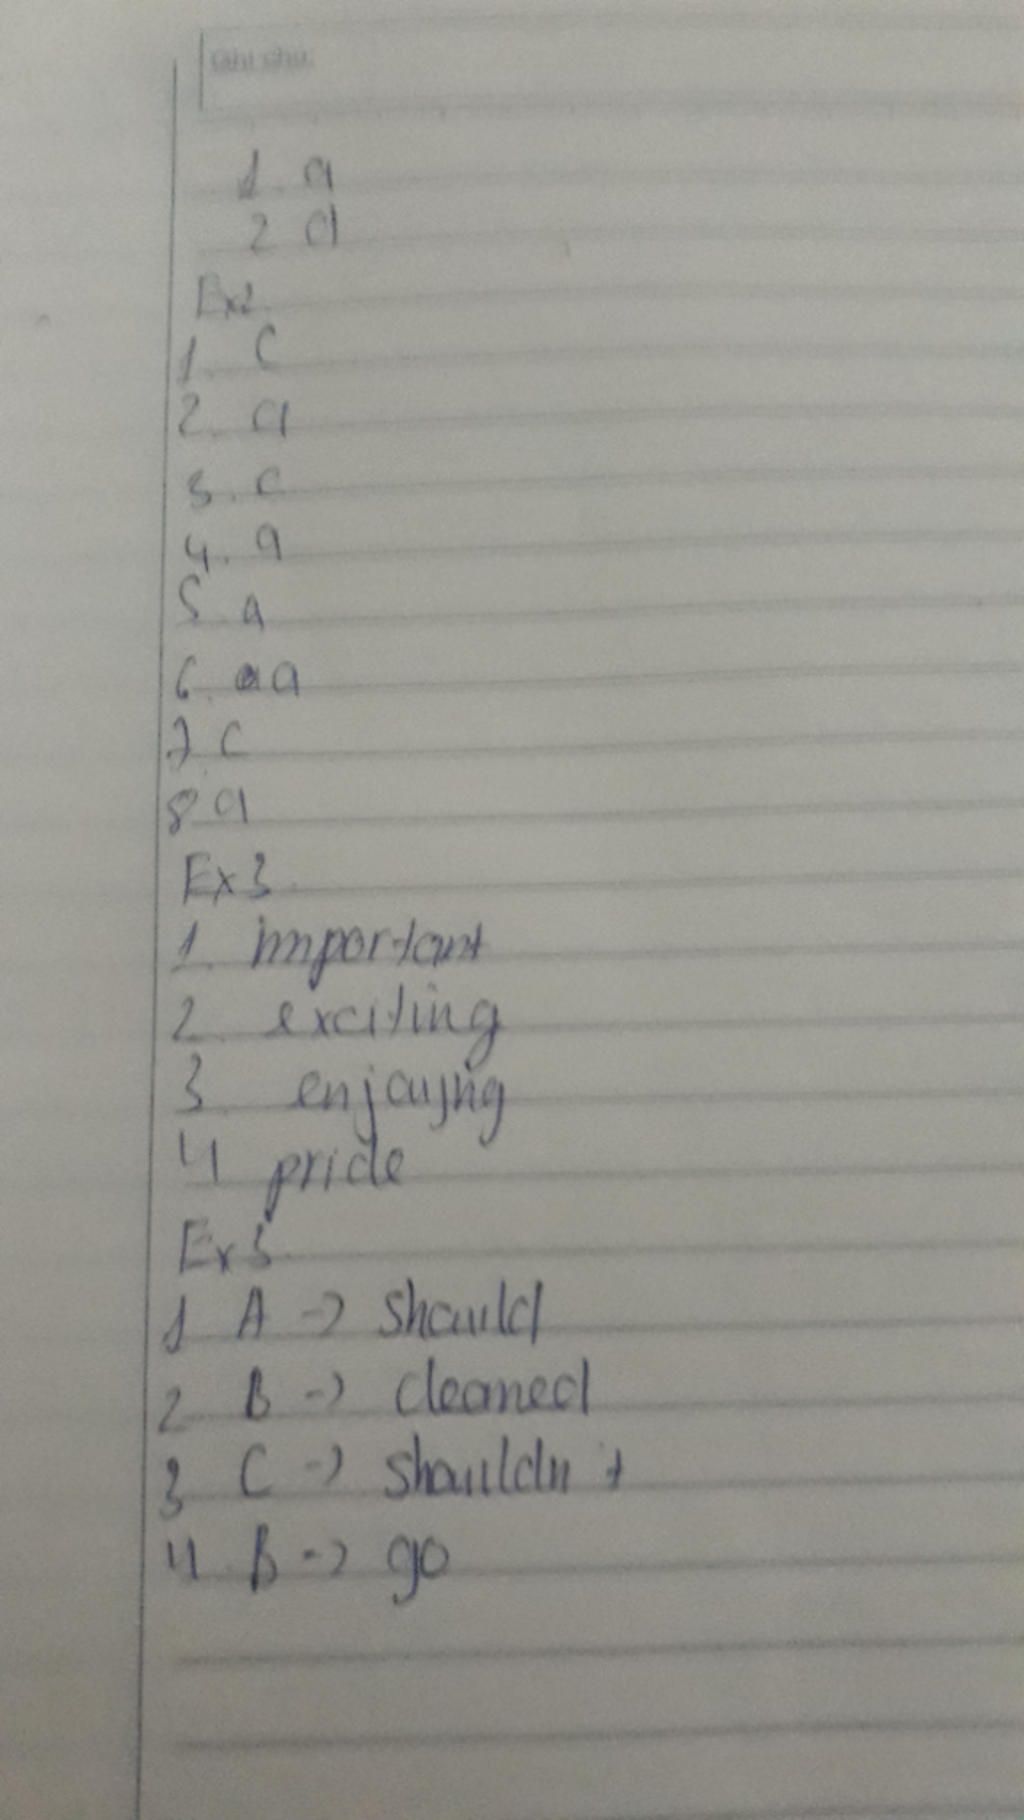 Ghi chú:
1. a
2 a
Ex2.
1. C
2. a
3. c
4. a
5. a
6. a a
7. c
8 a
Ex 3.
1. important
2. exciting
3. enjoying
4 pride
Ex 5.
1 A -> Should
2. B -> cleaned
3 C -> Shouldn't
4. B -> go